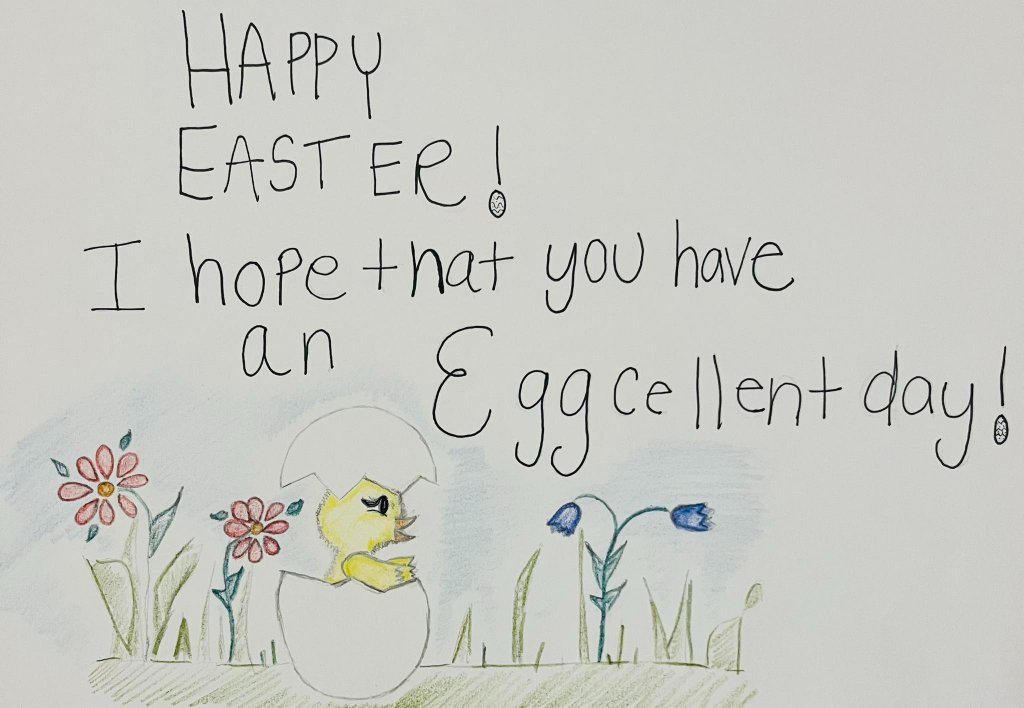 HAPPY
EASTER!
I hope that you have
an Eggcellent day!